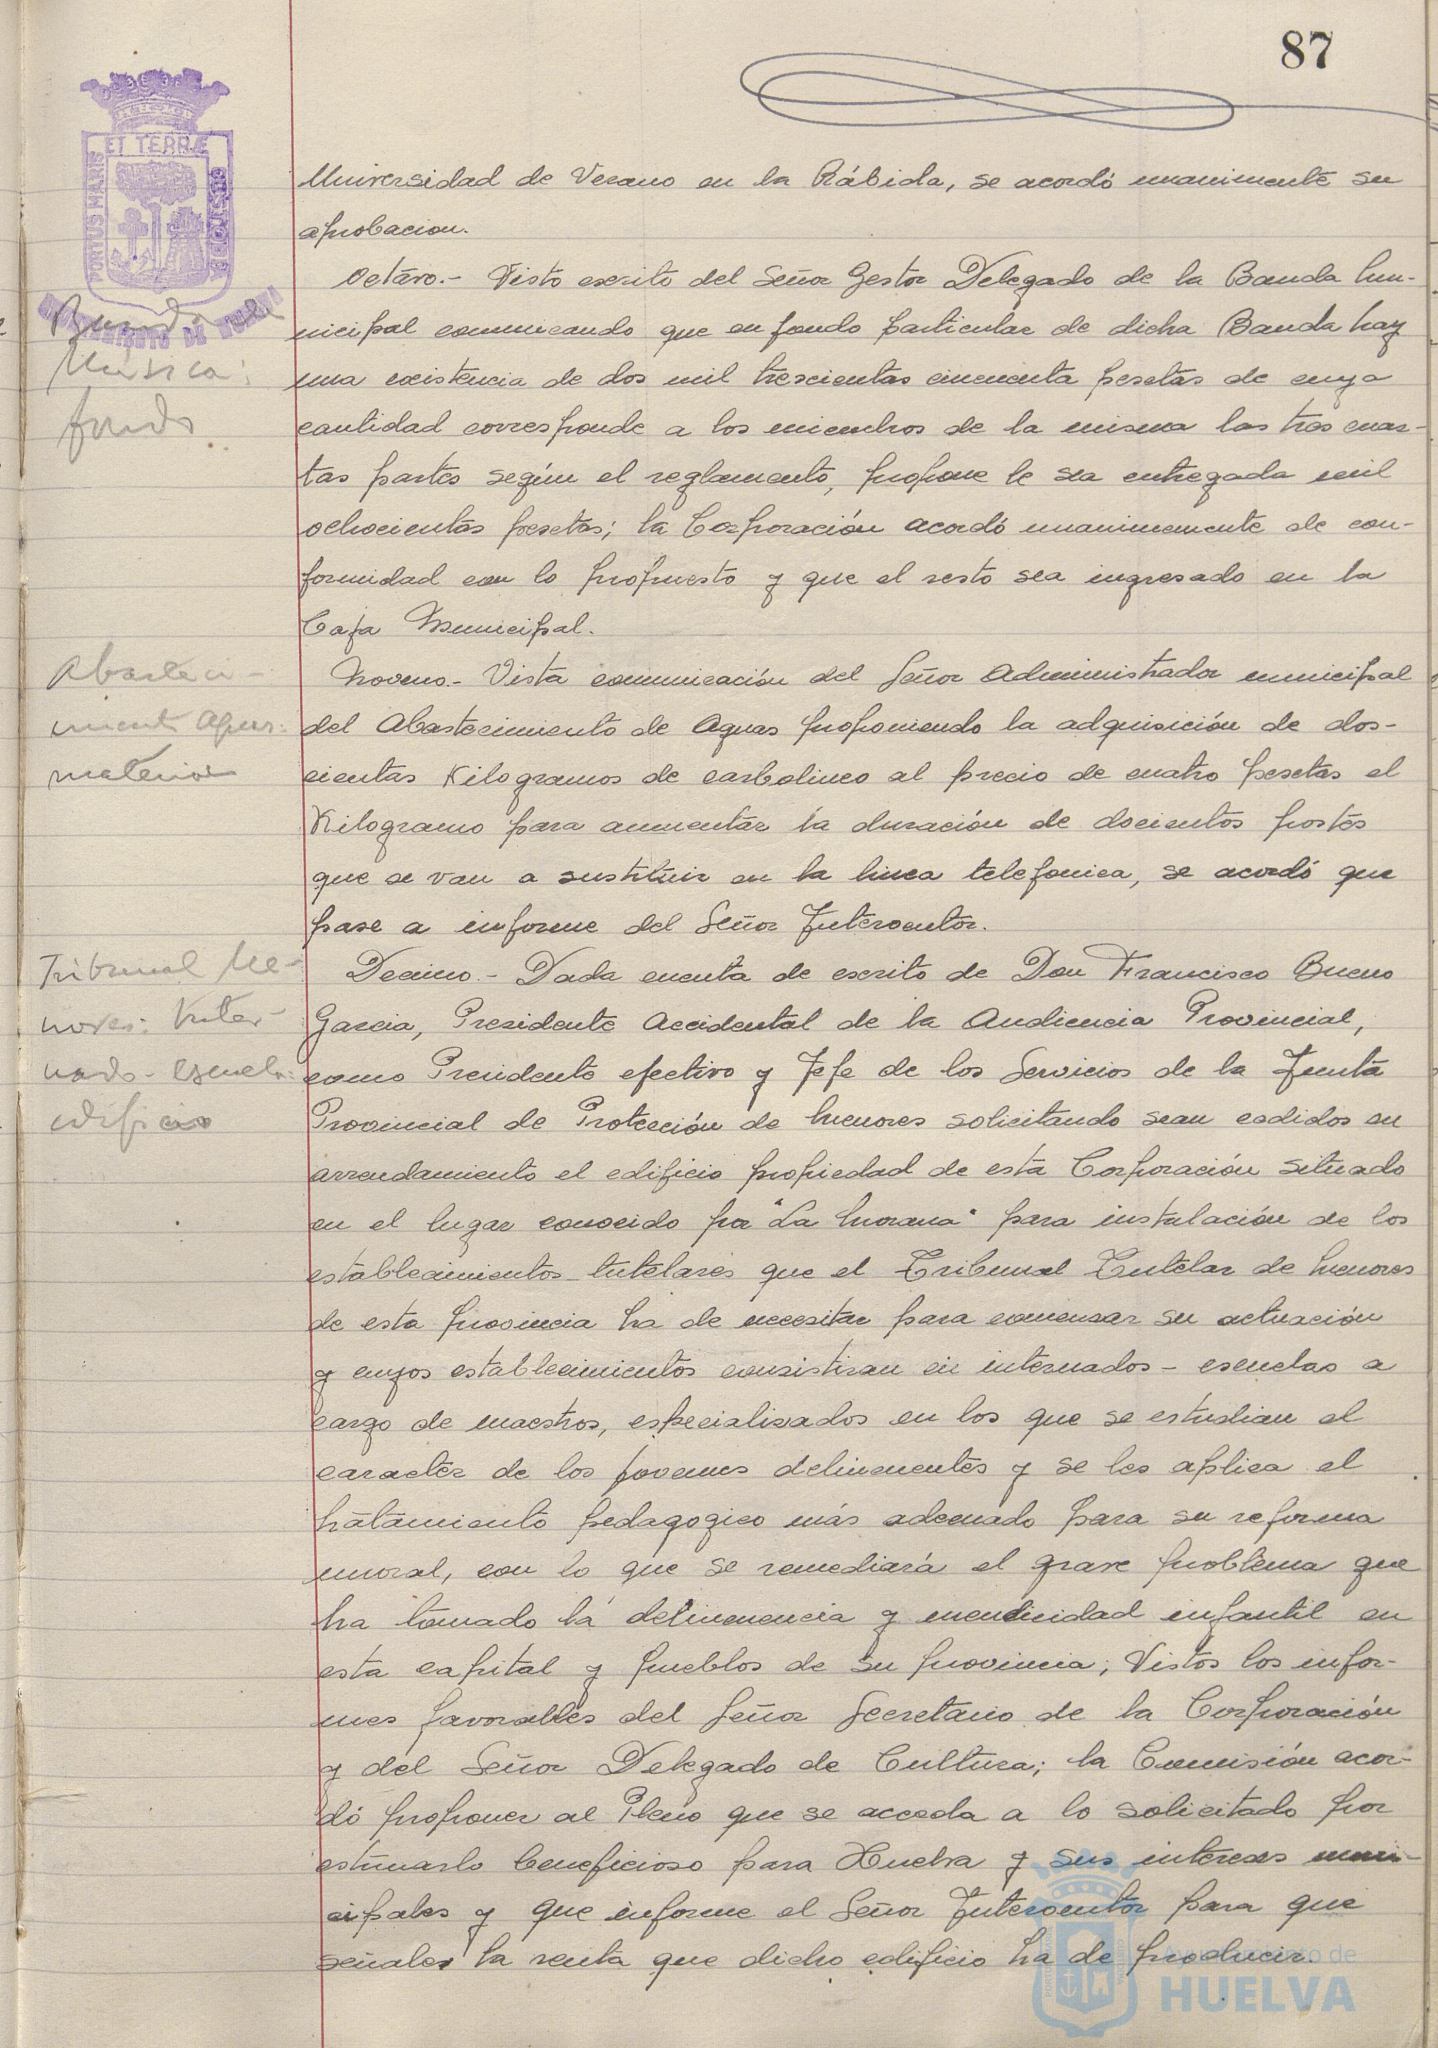 87
PORTUS MARIS
ET TERRÆ
CUSTODIA
Universidad de Verano en la Rábida, se acordó unanimente su
aprobacion.
Octavo.- Visto escrito del Señor Gestor Delegado de la Banda Mu-
nicipal comunicando que en fondo particular de dicha Banda hay
una existencia de dos mil trescientas cincuenta pesetas de cuya
cantidad corresponde a los miembros de la misma las tres cuar-
tas partes según el reglamento, propone le sea entregada mil
ochocientas pesetas; la Corporación acordó unanimemente de con-
formidad con lo propuesto y que el resto sea ingresado en la
Caja Municipal.
Noveno.- Vista comunicación del Señor Administrador municipal
del Abastecimiento de Aguas proponiendo la adquisición de dos-
cientas Kilogramos de carbolineo al precio de cuatro pesetas el
Kilogramo para aumentar la duración de docientos postes
que se van a sustituir en la linea telefonica, se acordó que
pase a informe del Señor Interventor.
Decimo.- Dada cuenta de escrito de Don Francisco Bueno
Garcia, Presidente Accidental de la Audiencia Provincial,
como Presidente efectivo y Jefe de los Servicios de la Junta
Provincial de Protección de Menores solicitando sean cedidos en
arrendamiento el edificio propiedad de esta Corporación situado
en el lugar conocido por "La Morana" para instalación de los
establecimientos tutelares que el Tribunal Tutelar de Menores
de esta provincia ha de necesitar para comenzar su actuación
y cuyos establecimientos consistiran en internados - escuelas a
cargo de maestros, especializados en los que se estudian el
caracter de los jovenes delincuentes y se les aplica el
tratamiento pedagogico más adecuado para su reforma
moral, con lo que se remediará el grave problema que
ha tomado la delincuencia y mendicidad infantil en
esta capital y pueblos de su provincia; Vistos los infor-
mes favorables del Señor Secretario de la Corporación
y del Señor Delegado de Cultura; la Comisión acor-
dó proponer al Pleno que se acceda a lo solicitado por
estimarlo beneficioso para Huelva y sus intereses muni-
cipales y que informe el Señor Interventor para que
señales la renta que dicho edificio ha de producir.
Banda de
Música:
fondo
Abasteci-
miento Aguas:
material
Tribunal Me-
nores: Inter-
nado - Escuela:
edificio
Ayuntamiento de
HUELVA